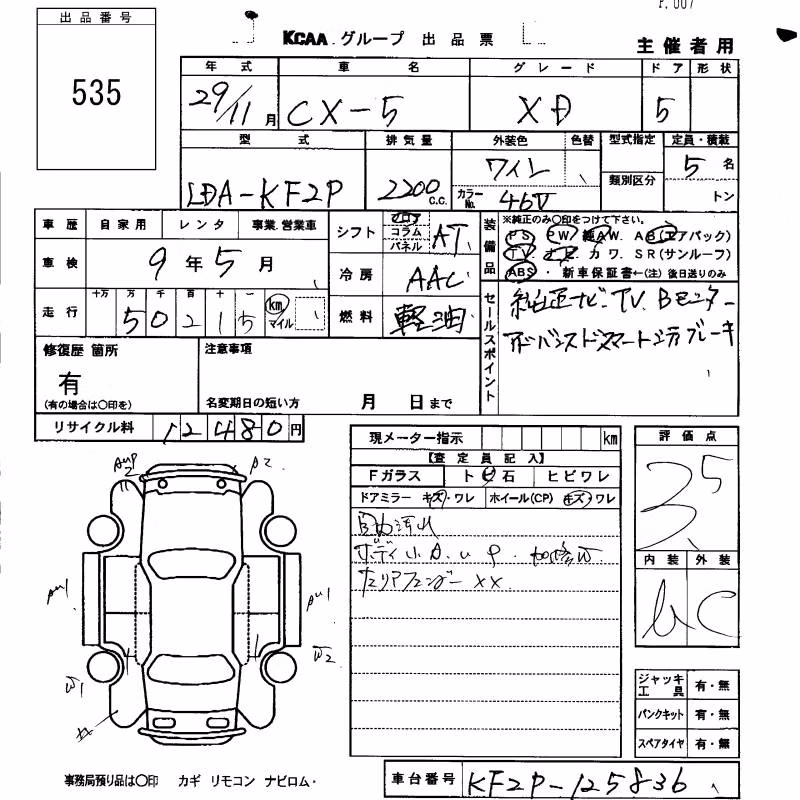 出品番号
535
P. 007
KCAA グループ 出品票
主催者用
年式 車名 グレード ドア 形状
29/11月 CX-5 XD 5
型式 排気量 外装色 色替 型式指定 定員・積載
LDA-KF2P 2200 C.C. ワイン 5名
カラーNo. 46V 類別区分 トン
車歴 自家用 レンタ 事業.営業車
車検 9年5月
十万 万 千 百 十 一
走行 50215 km マイル
シフト フロア コラム パネル AT
冷房 AAC
燃料 軽油
装備品
※純正のみ○印をつけて下さい。
PS PW 純AW. AB(エアバック)
TV. ナビ. カワ. SR(サンルーフ)
ABS・新車保証書←(注)後日送りのみ
セールスポイント
純正ナビ. TV. Bモニター
アドバンスドスマートシティブレーキ
修復歴 箇所
有
(有の場合は○印を)
注意事項
名変期日の短い方 月 日まで
リサイクル料 12480円
現メーター指示 km
【査定員記入】
Fガラス トビ石 ヒビワレ
ドアミラー キズ・ワレ ホイール(CP) キズ・ワレ
ボディ小A.U
左リアフェンダーXX
評価点
3.5
内装 外装
b C
A2
AU1
AU1
W1
W2
XX
ジャッキ工具 有・無
パンクキット 有・無
スペアタイヤ 有・無
事務局預り品は○印 カギ リモコン ナビロム・
車台番号 KF2P-125836